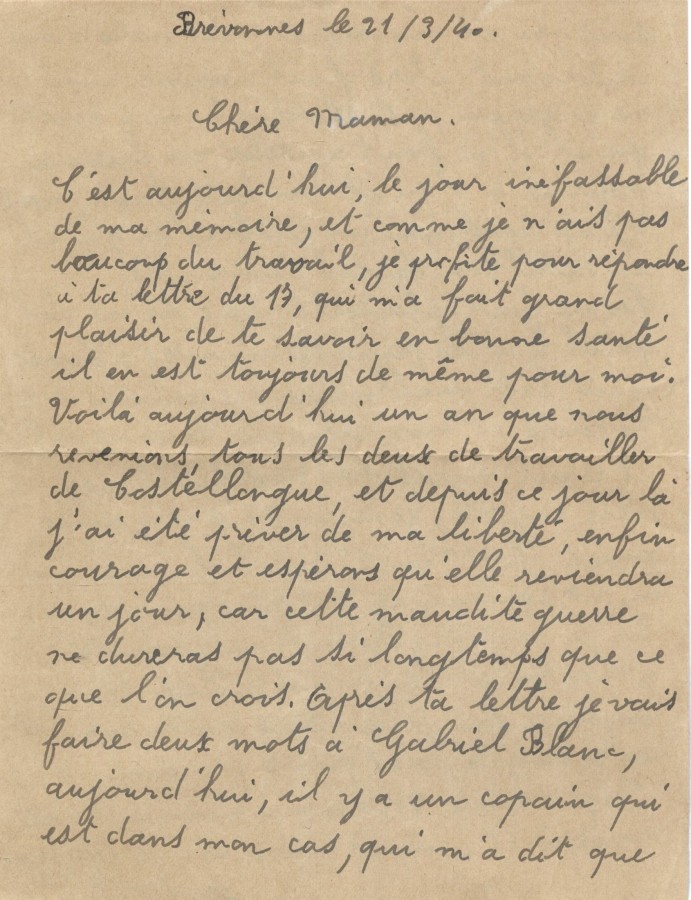 Brévonnes le 21/3/40.
Chère Maman.
C'est aujourd'hui, le jour inéfassable
de ma mémoire, et comme je n'ais pas
beaucoup du travail, je profite pour répondre
à ta lettre du 17, qui m'a fait grand
plaisir de te savoir en bonne santé
il en est toujours de même pour moi.
Voilà aujourd'hui un an que nous
revenions, tous les deux de travailler
de Costéllongue, et depuis ce jour là
j'ai été priver de ma liberté, enfin
courage et espérons qu'elle reviendra
un jour, car cette maudite guerre
ne dureras pas si longtemps que ce
que l'on crois. Après ta lettre je vais
faire deux mots à Gabriel Blanc,
aujourd'hui, il y a un copain qui
est dans mon cas, qui m'a dit que